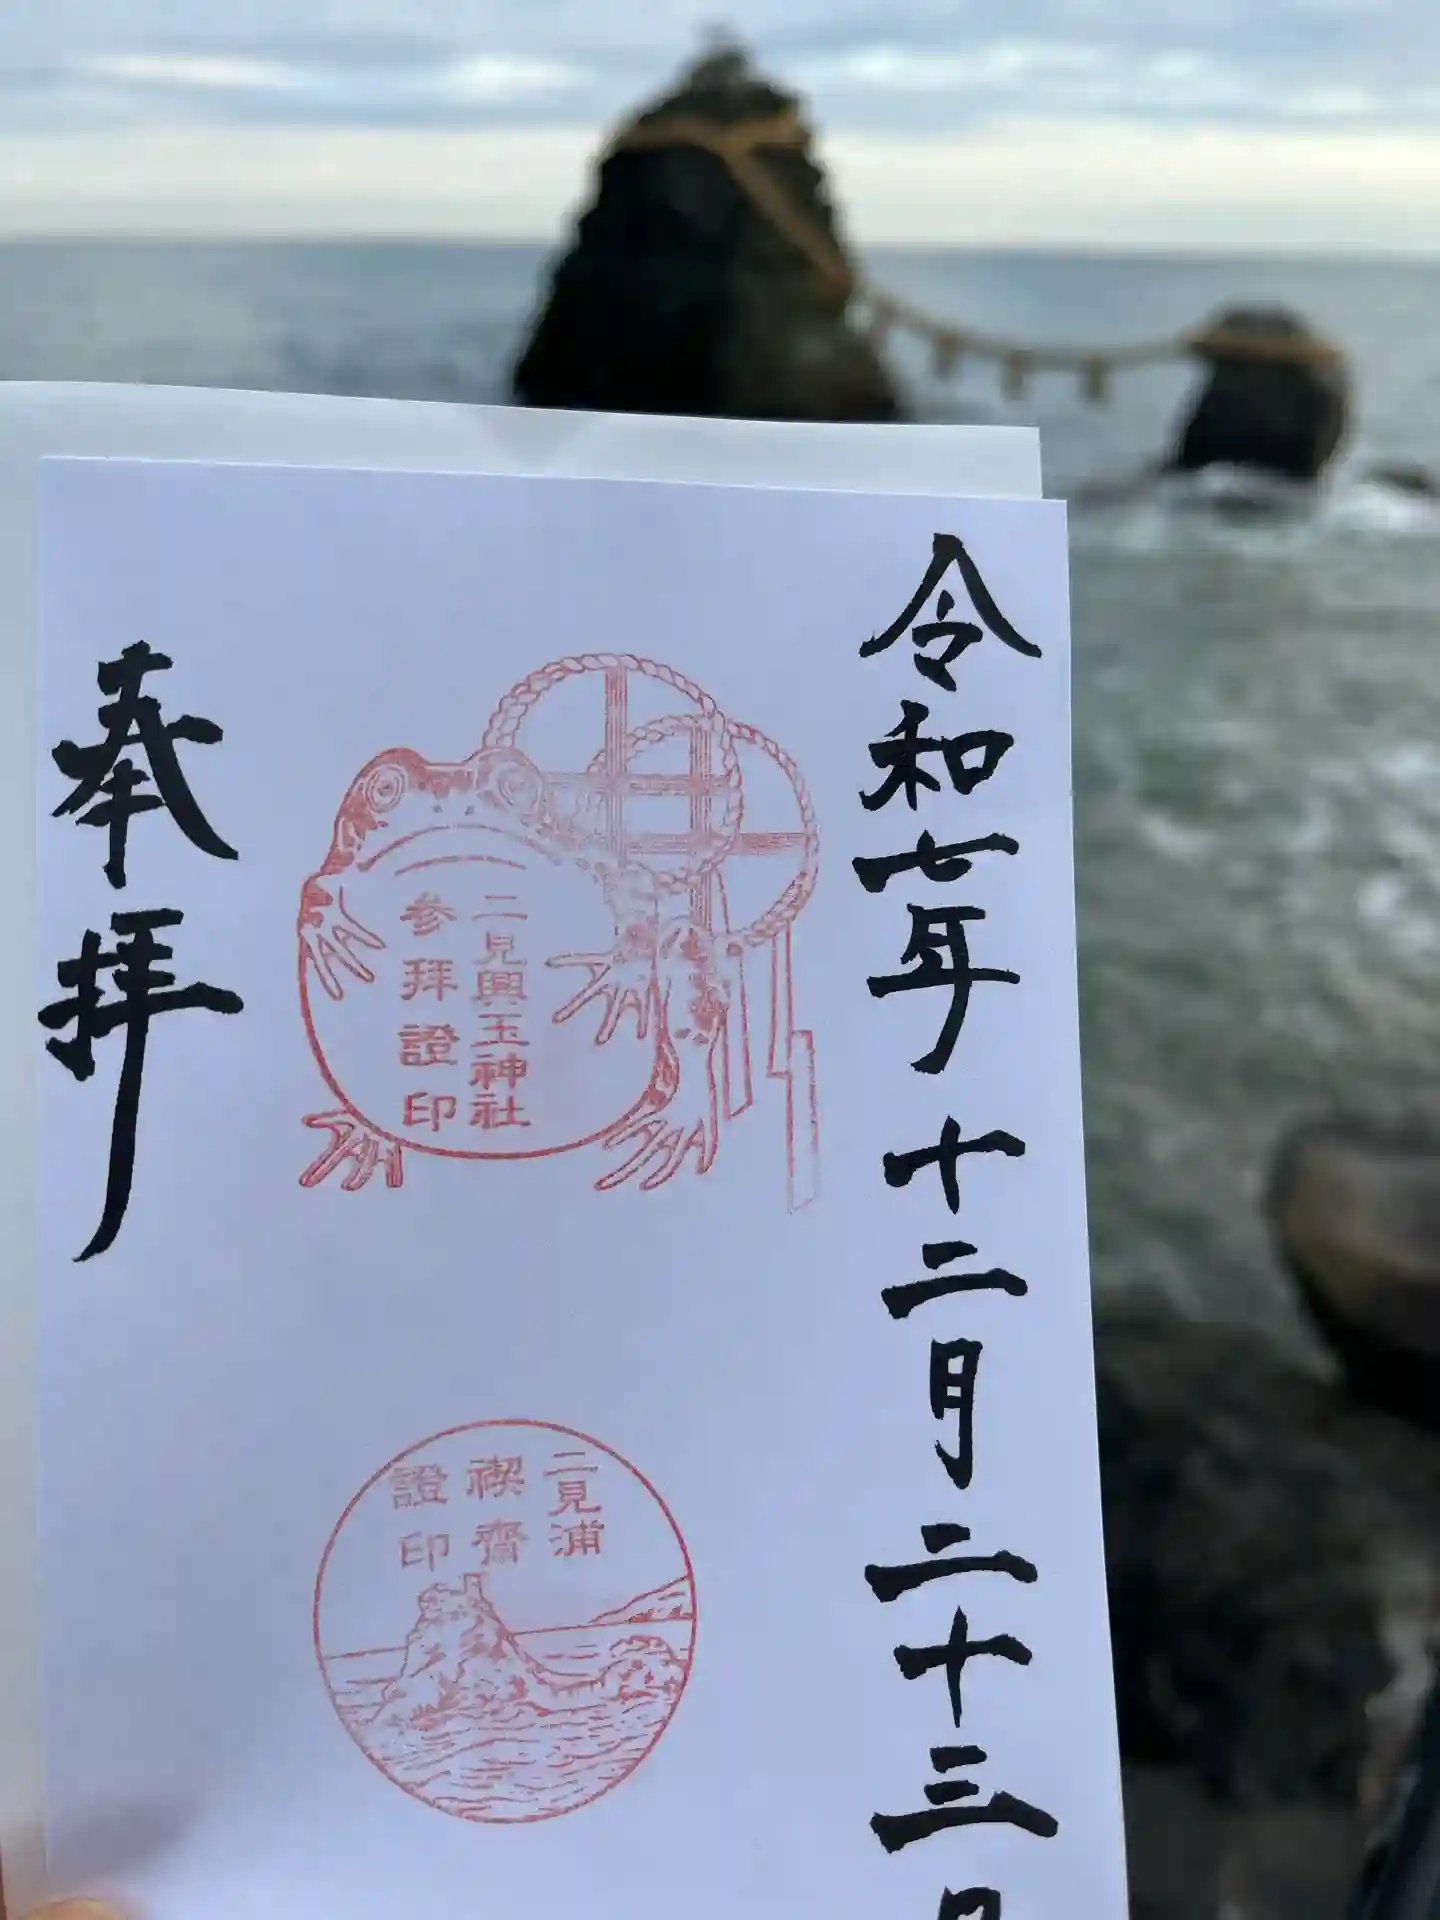 令和七年十二月二十三日
二見興玉神社
参拜證印
二見浦
禊齋
證印
奉拝